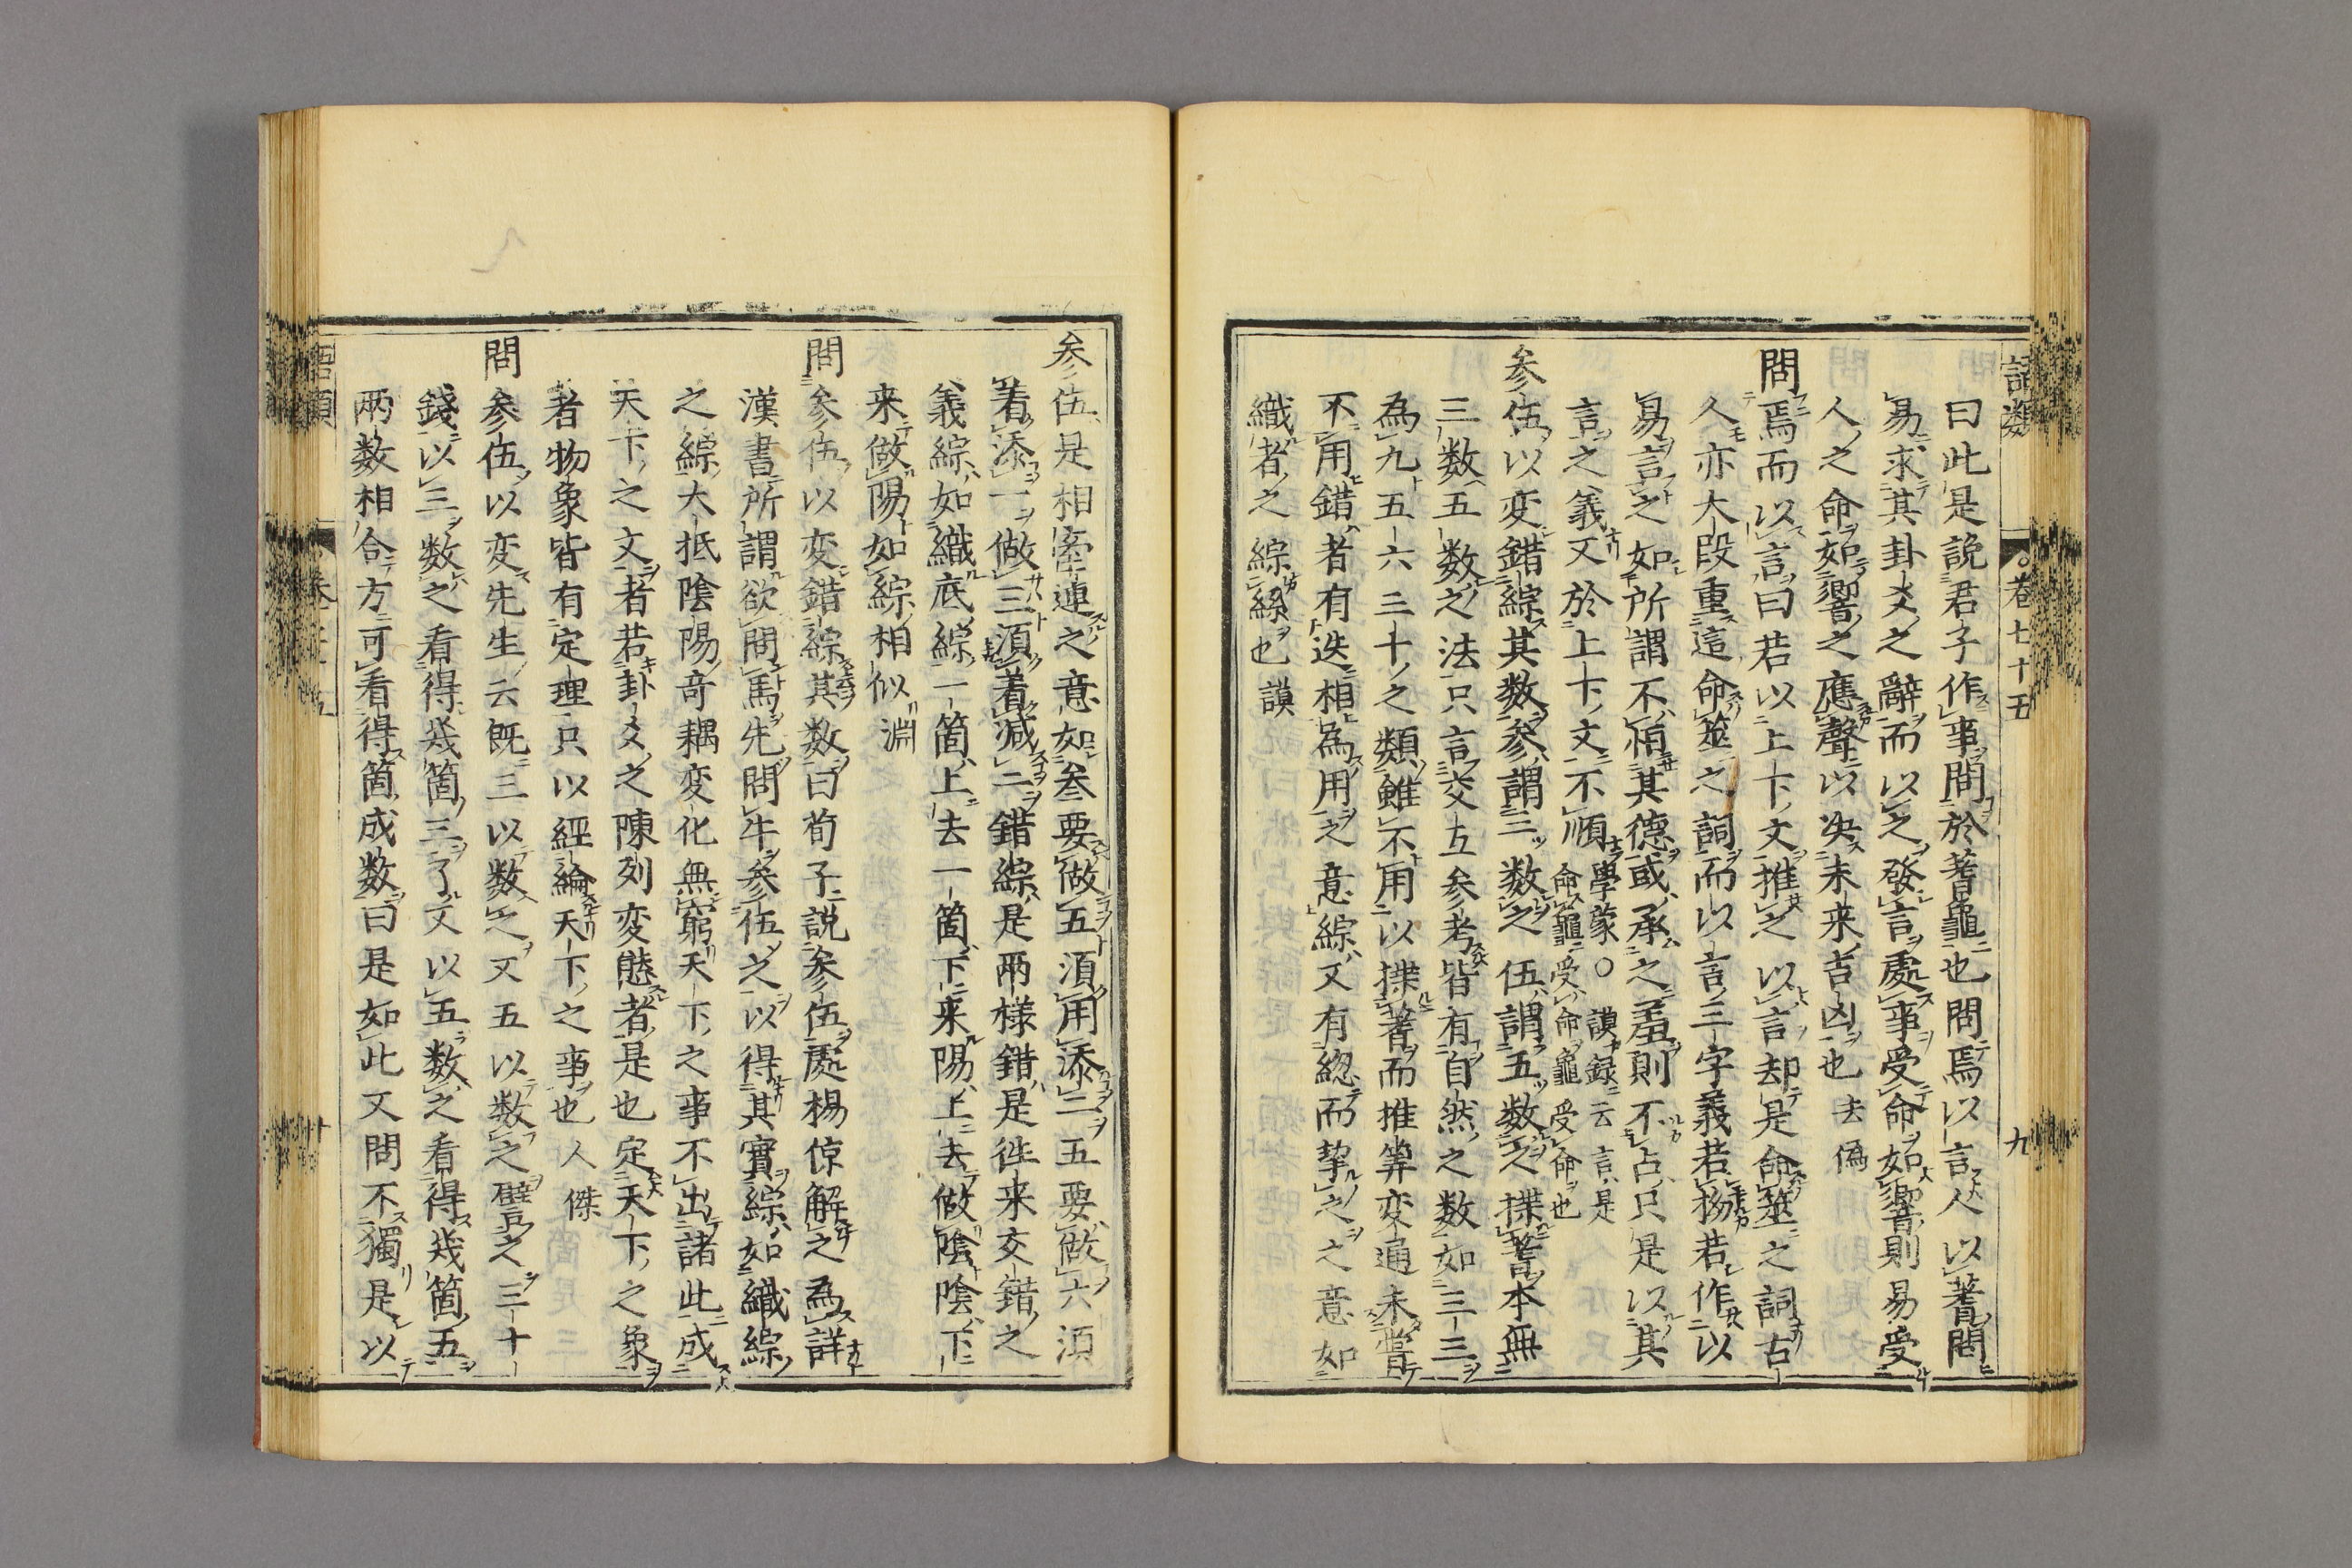 語類
卷七十五
九
曰此是説君子作事問於蓍龜也問焉以言人以蓍問
易求其卦爻之辭而以之發言處事受命如響則易受
人之命如響之應聲以决未来吉凶也去偽
問焉而以言曰若以上下文推之以言却是命筮之詞古
人亦大段重這命筮之詞而以言三字義若拗若作以
易言之如所謂不恒其德或承之羞則不占只是以其
言之義又於上下文不順學蒙〇謨録云言是
命龜受命龜受命也
参伍以変錯綜其数参謂三数之伍謂五数之揲蓍本無
三数五数之法只言交互参考皆有自然之数如三三
為九五六三十之類雖不用以揲蓍而推筭変通未嘗
不用錯者有迭相為用之意綜又有緫而挈之之意如
織者之綜絲也謨
参伍是相牽連之意如参要做五須用添二五要做六須
着添一做三須着减二錯綜是兩樣錯是徃来交錯之
義綜如織底綜一箇上去一箇下来陽上去做陰陰下
来做陽如綜相似淵
問参伍以変錯綜其数曰荀子説参伍處楊倞解之為詳
漢書所謂欲問馬先問牛参伍之以得其實綜如織綜
之綜大抵陰陽竒耦変化無窮天下之事不出諸此成
天下之文者若卦爻之陳列変態者是也定天下之象
者物象皆有定理只以經綸天下之事也人傑
問参伍以変先生云既三以数之又五以数之譬之三十
錢以三数之看得幾箇三了又以五数之看得幾箇五
兩数相合方可看得箇成数曰是如此又問不獨是以